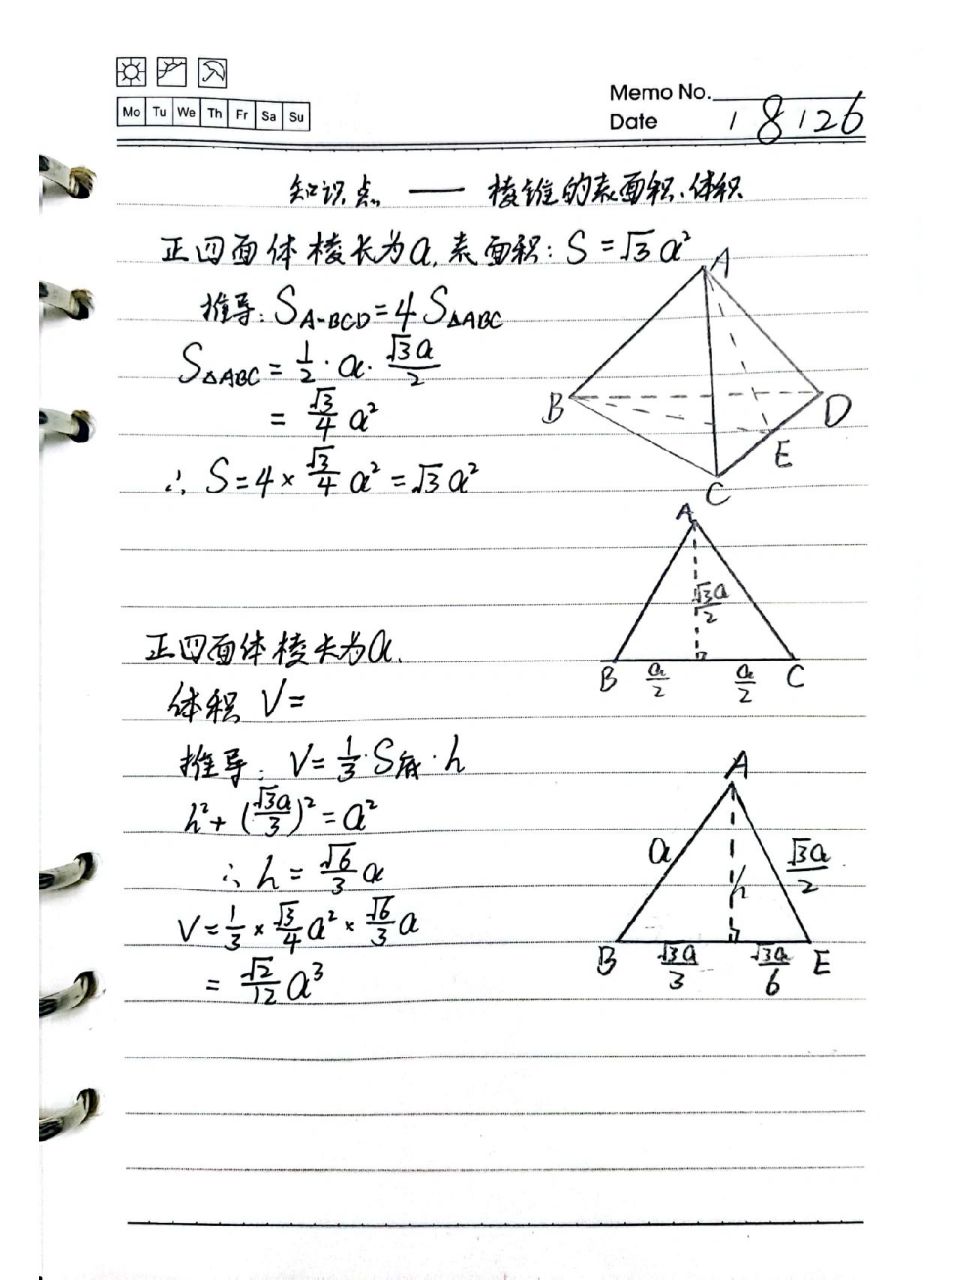 Mo Tu We Th Fr Sa Su
Memo No.
Date 1 8 1 26
知识点 —— 棱锥的表面积、体积
正四面体棱长为a, 表面积: S = √3 a²
推导: S_A-BCD = 4 S△ABC
S△ABC = 1/2 · a · √3a/2
= √3/4 a²
∴ S = 4 × √3/4 a² = √3 a²
A
B
D
E
C
A
√3a/2
B a/2 a/2 C
正四面体棱长为a.
体积 V =
推导: V = 1/3 · S底 · h
h² + (√3a/3)² = a²
∴ h = √6/3 a
V = 1/3 × √3/4 a² × √6/3 a
= √2/12 a³
A
a √3a/2
h
B √3a/3 √3a/6 E